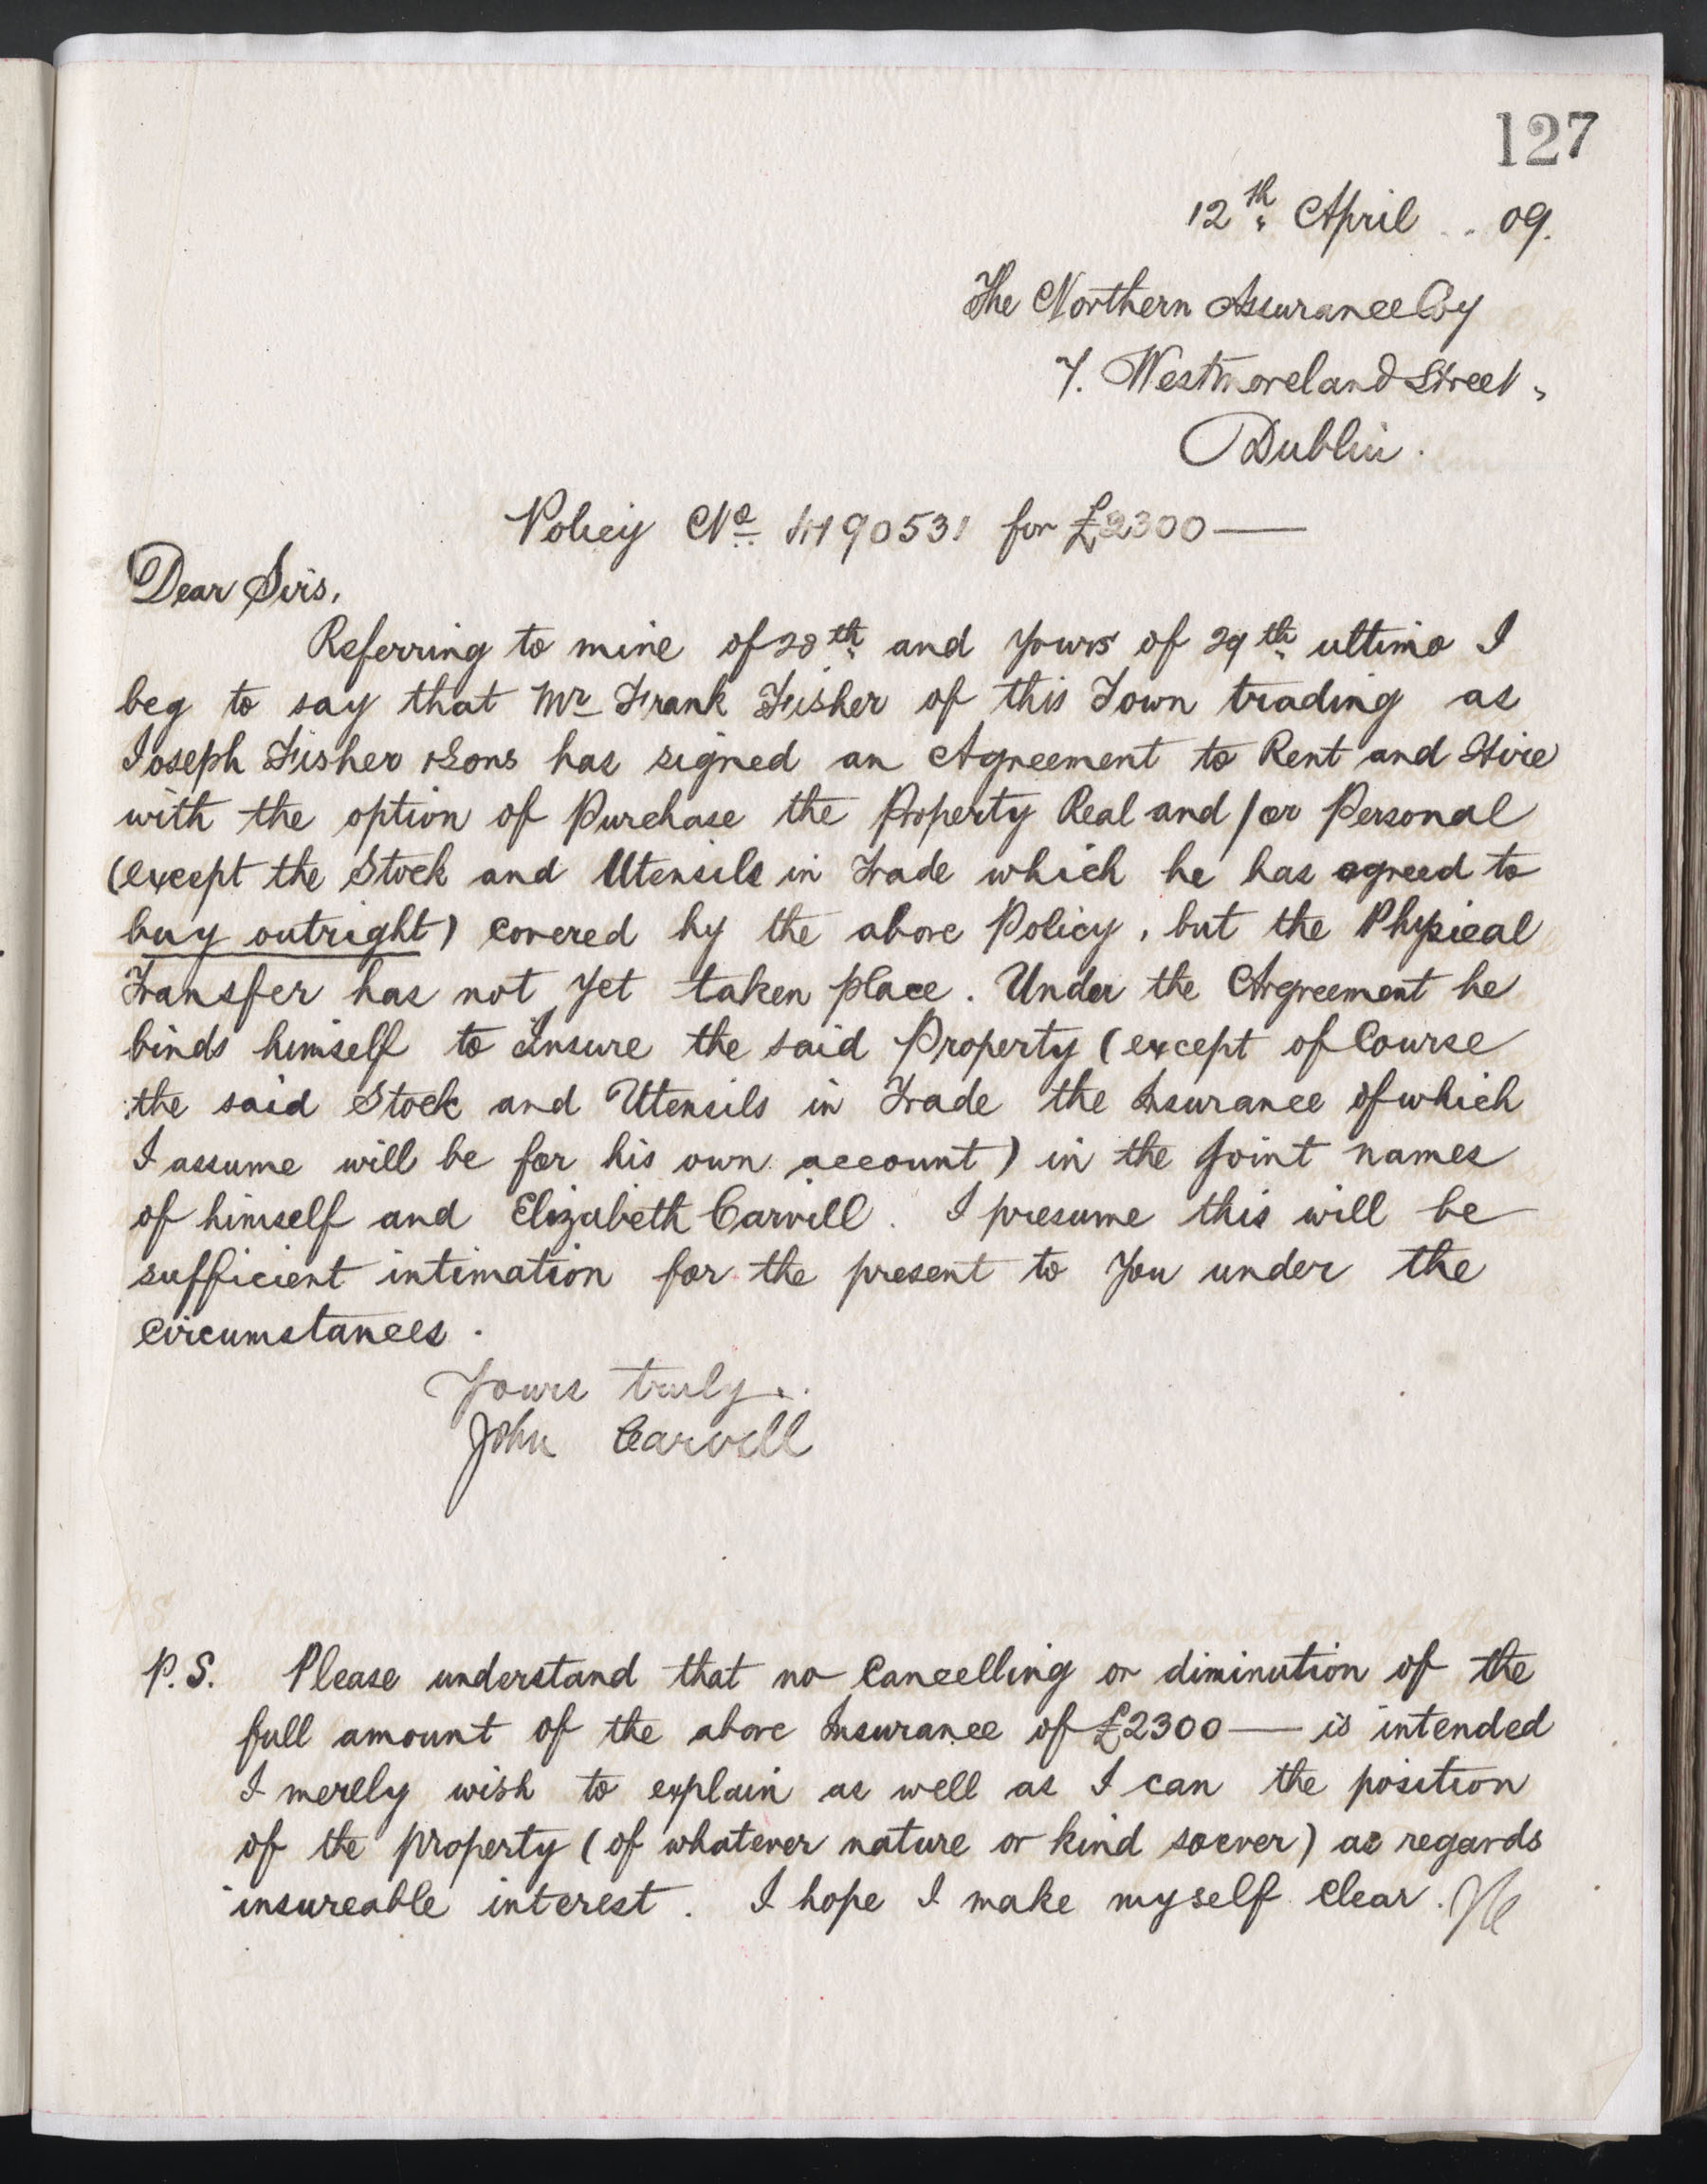 127
12th April .. 09.
The Northern Assurance Coy
7. Westmoreland Street,
Dublin.
Policy No 4190531 for £2300 —
Dear Sirs,
Referring to mine of 28th and yours of 29th ultimo I
beg to say that Mr Frank Fisher of this Town trading as
Joseph Fisher & Sons has signed an Agreement to Rent and Hire
with the option of Purchase the Property Real and/or Personal
(except the Stock and Utensils in Trade which he has agreed to
buy outright) covered by the above Policy, but the Physical
Transfer has not yet taken place. Under the Agreement he
binds himself to Insure the said Property (except of Course
the said Stock and Utensils in Trade the Insurance of which
I assume will be for his own account) in the joint names
of himself and Elizabeth Carvill. I presume this will be
sufficient intimation for the present to You under the
circumstances.
Yours truly..
John Carvill
P.S. Please understand that no Cancelling or diminution of the
full amount of the above Insurance of £2300 — is intended
I merely wish to explain as well as I can the position
of the property (of whatever nature or kind soever) as regards
insureable interest. I hope I make myself clear. JC